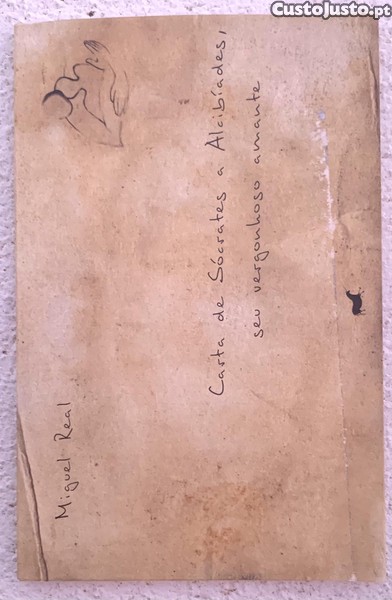 CustoJusto.pt
Miguel Real
Carta de Sócrates a Alcibíades,
seu vergonhoso amante